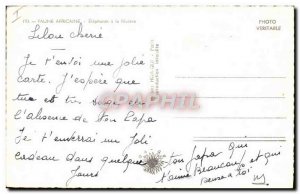 I
FAUNE AFRICAINE : Éléphants à la Rivière
PHOTO
VERITABLE
Lilou chérie
Je t'envoi une jolie
carte. J'espère que
tu es très sage
l'absence de ton Papa
Je t'enverrai un Joli
cadeau dans quelques
Jours
ton Papa qui
t'aime Beaucoup et qui
pense à toi